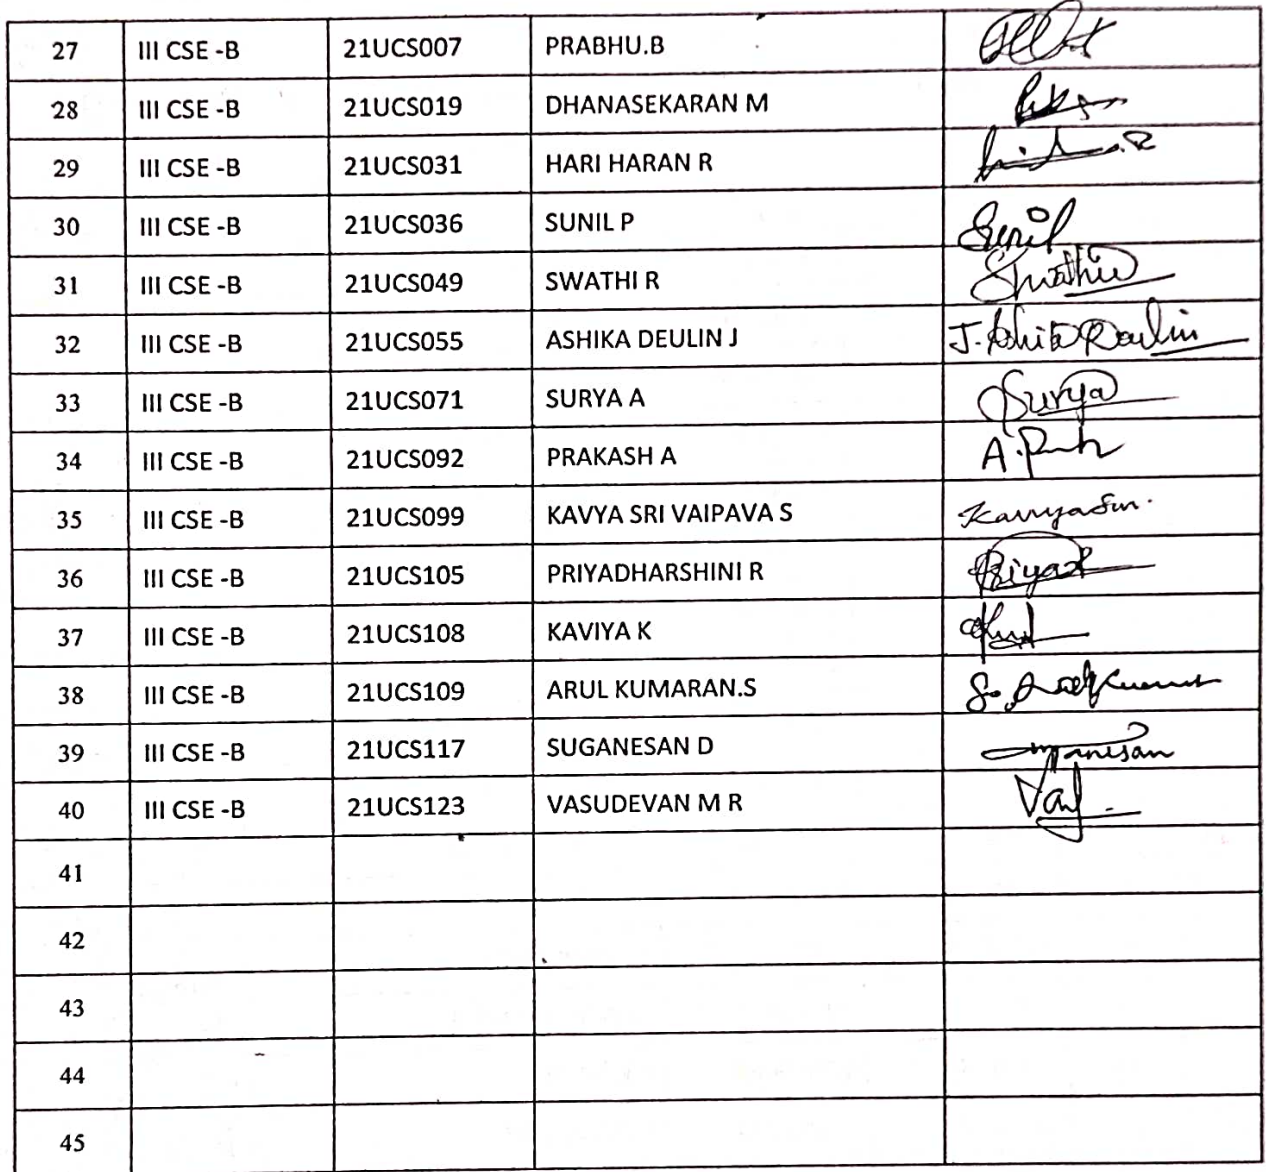 27 III CSE -B 21UCS007 PRABHU.B
28 III CSE -B 21UCS019 DHANASEKARAN M
29 III CSE -B 21UCS031 HARI HARAN R
30 III CSE -B 21UCS036 SUNIL P Sunil
31 III CSE -B 21UCS049 SWATHI R Swathi
32 III CSE -B 21UCS055 ASHIKA DEULIN J J. Ashika Deulin
33 III CSE -B 21UCS071 SURYA A Surya
34 III CSE -B 21UCS092 PRAKASH A A.
35 III CSE -B 21UCS099 KAVYA SRI VAIPAVA S KavyaSri.
36 III CSE -B 21UCS105 PRIYADHARSHINI R Priya
37 III CSE -B 21UCS108 KAVIYA K
38 III CSE -B 21UCS109 ARUL KUMARAN.S S.
39 III CSE -B 21UCS117 SUGANESAN D
40 III CSE -B 21UCS123 VASUDEVAN M R
41
42
43
44
45